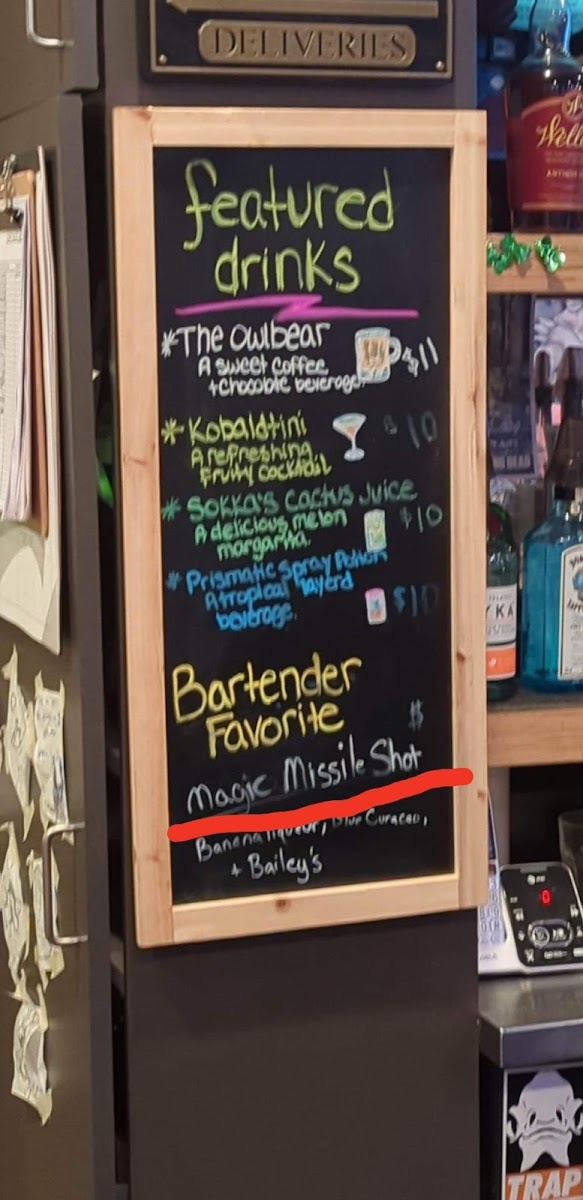 DELIVERIES
featured
drinks
*The Owlbear
A sweet coffee
+chocolate beverage.
$11
* Kobaldtini
A refreshing
fruity cocktail
$10
* Sokka's Cactus Juice
A delicious melon
margarita.
$10
* Prismatic Spray Potion
A tropical layerd
beverage.
$10
Bartender
Favorite
$
Magic Missile Shot
Banana liqueur, Blue Curacao,
+ Bailey's
TRAP